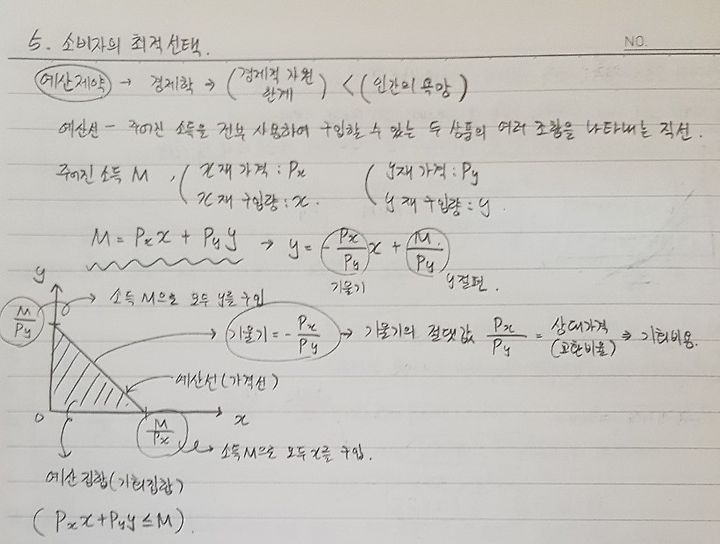 5. 소비자의 최적선택.
NO.
예산제약 → 경제학 → (경제적 자원 한계) < (인간의 욕망)
예산선 - 주어진 소득을 전부 사용하여 구입할 수 있는 두 상품의 여러 조합을 나타내는 직선.
주어진 소득 M, ( x재 가격 : Px ( y재 가격 : Py
x재 구입량 : x. y재 구입량 : y.
M = Pxx + Pyy → y = -Px/Py x + M/Py
기울기 y절편.
y
M/Py → 소득 M으로 모두 y를 구입
기울기 = -Px/Py → 기울기의 절댓값 Px/Py = 상대가격 (교환비율) ⇒ 기회비용.
예산선(가격선)
0 M/Px x
→ 소득 M으로 모두 x를 구입.
예산집합(기회집합)
(Pxx + Pyy ≤ M)